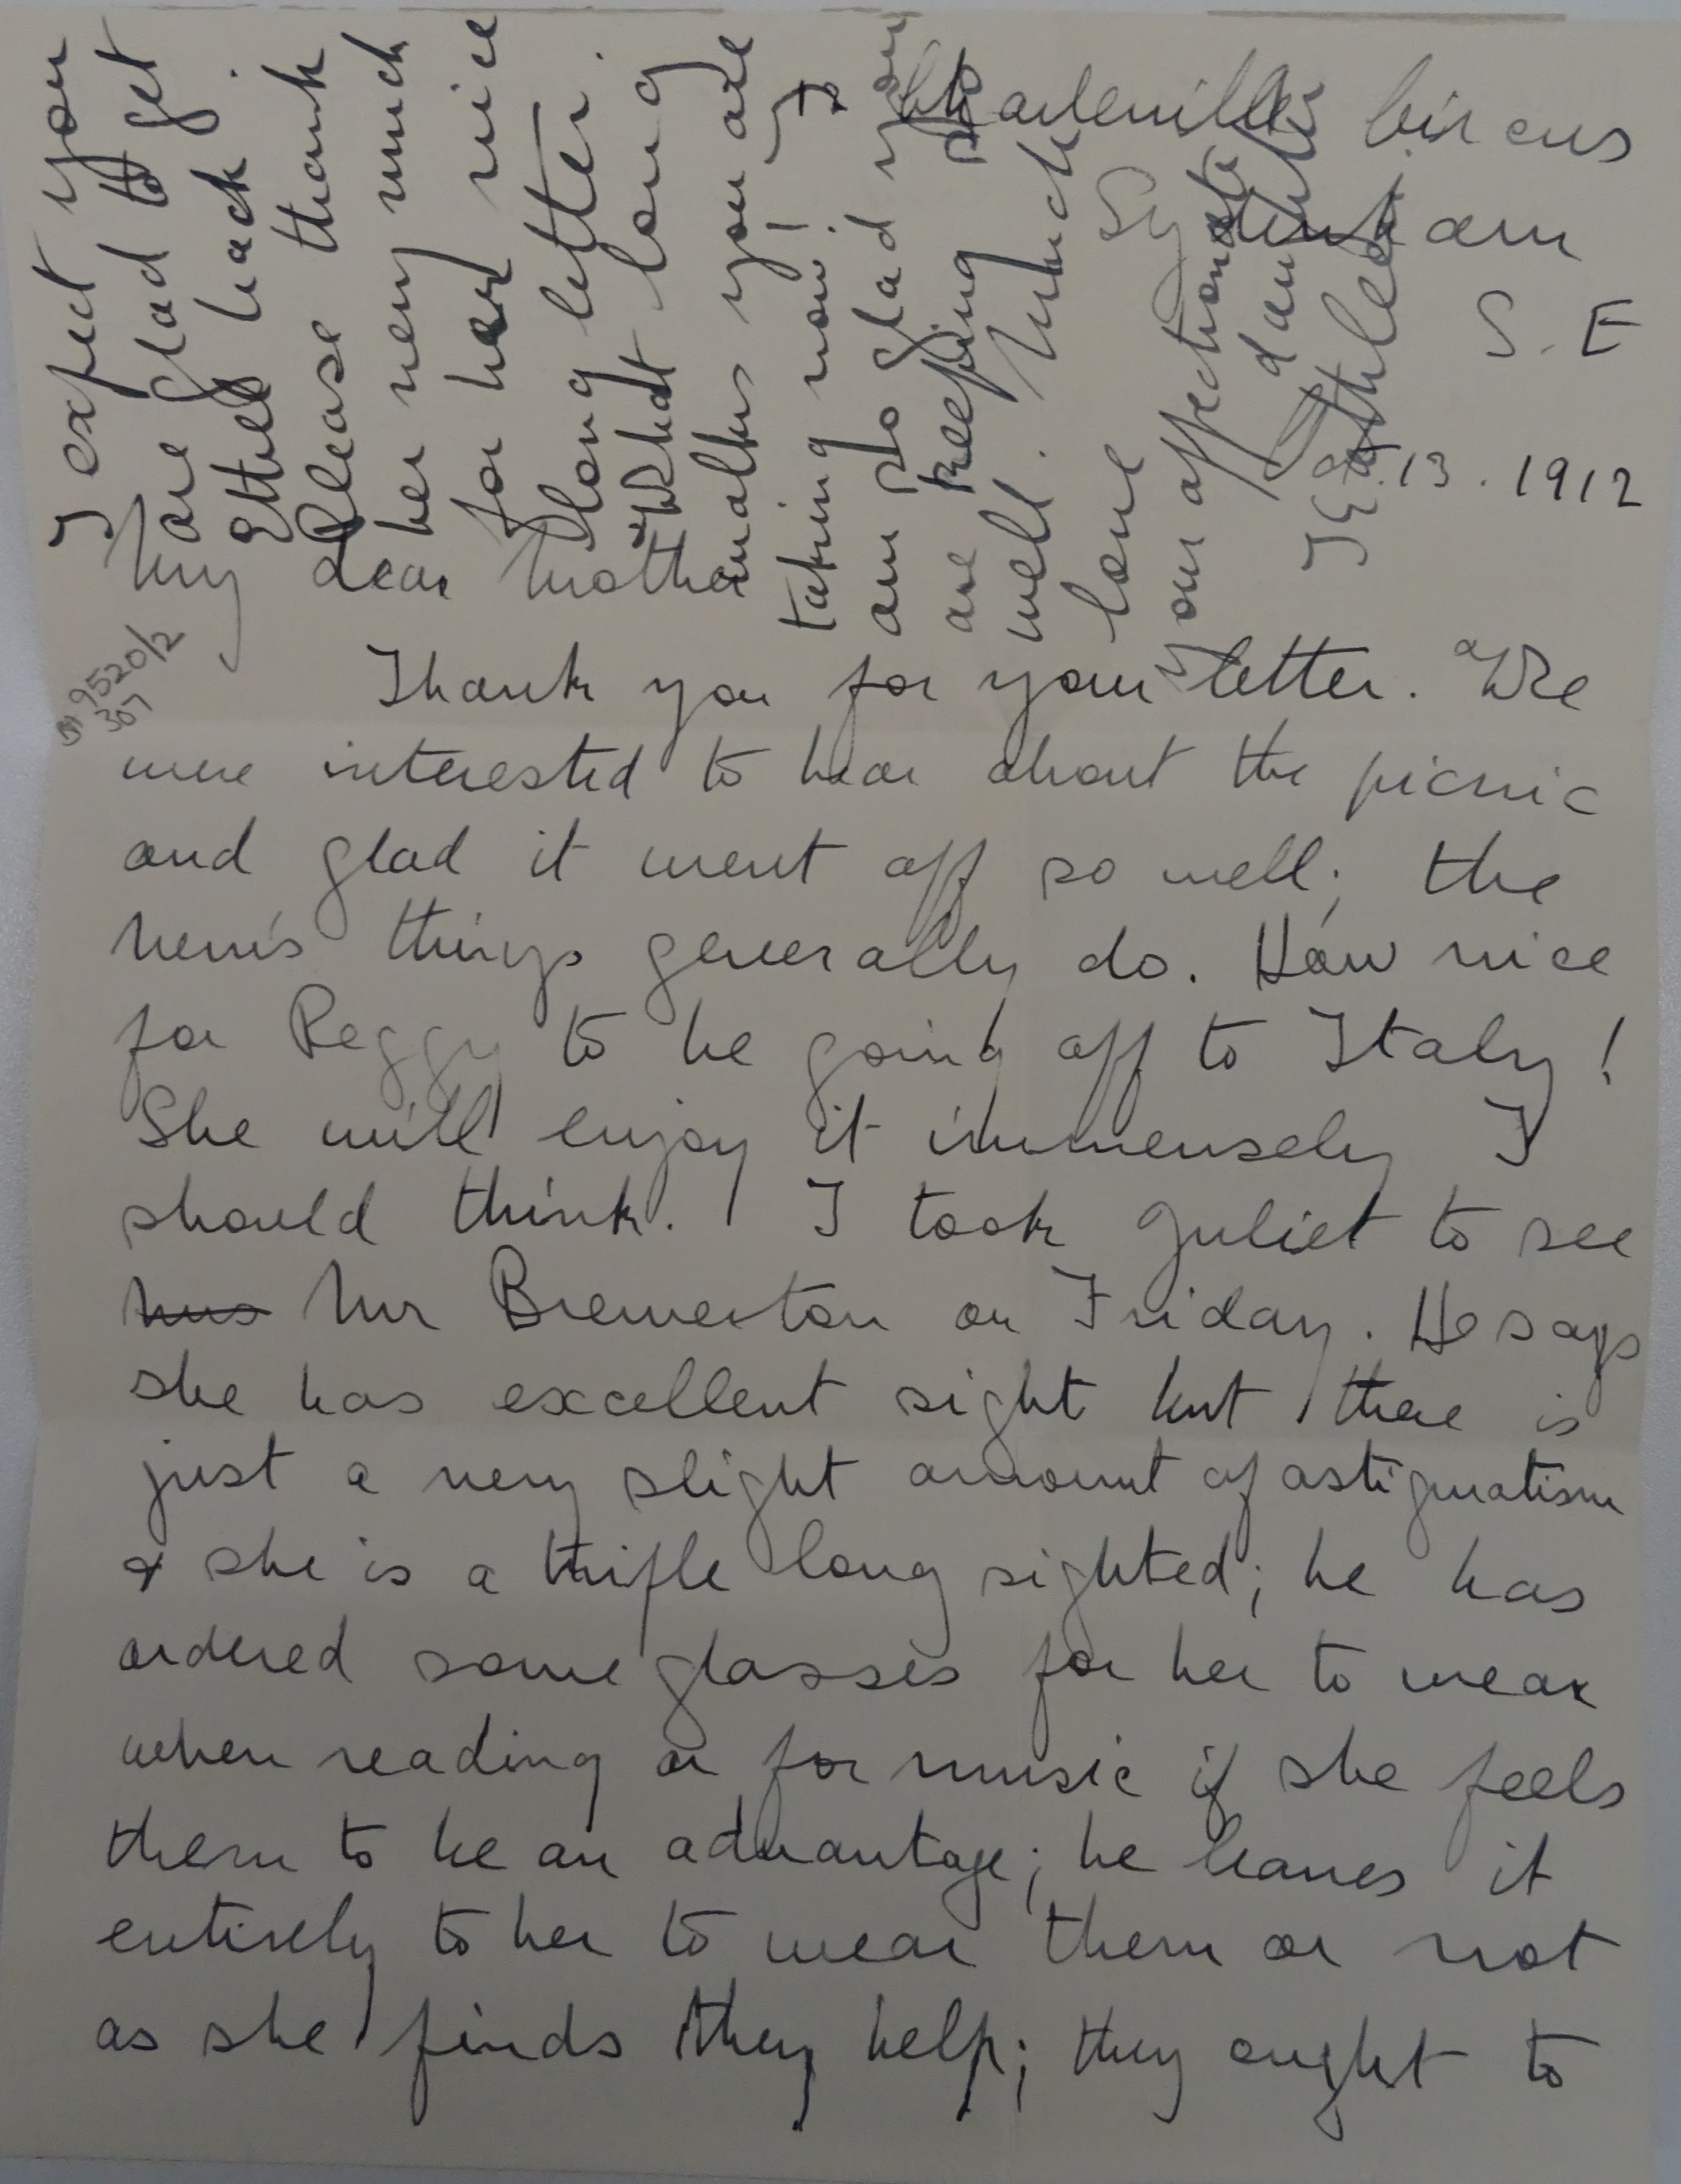 Charleville Circus
Sydenham
S.E
13.1912
My dear Mother
Thank you for your letter. We
were interested to hear about the picnic
and glad it went off so well; the
things generally do. How nice
for Peggy to be going off to Italy!
She will enjoy it immensely I
should think. I took Juliet to see
Mr Brewerton on Friday. He says
she has excellent sight but there is
just a very slight amount of astigmatism
& she is a trifle long sighted; he has
ordered some glasses for her to wear
when reading or for music if she feels
them to be an advantage; he leaves it
entirely to her to wear them or not
as she finds they help; they ought to
I expect you
are glad to get
Ethel back.
Please thank
her very much
for her nice
long letter.
What long
walks you are
taking now! I
am so glad you
are keeping so
well. Much
love
your affectionate
daughter
Kathleen
9520/2
307